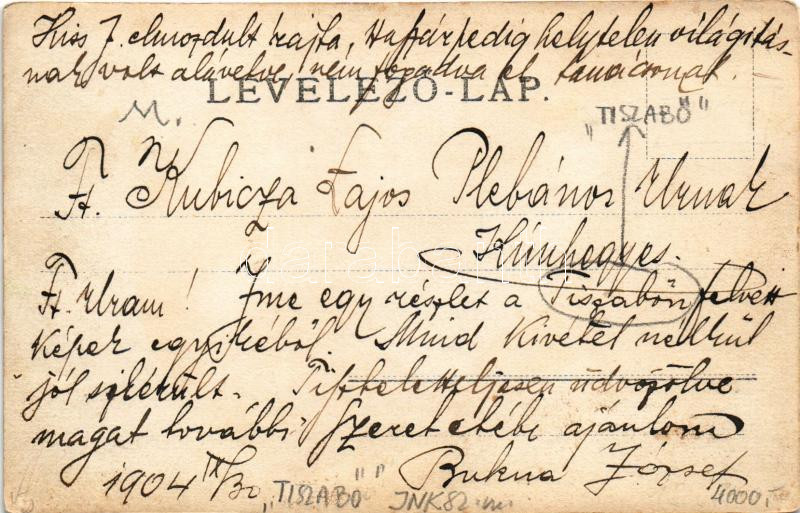 Kiss J. elmozdult rajta, Huffár pedig helytelen világitás-
nak volt alávetve, nem fogadva el tanácsomat.
LEVELEZŐ-LAP.
M.
"TISZABŐ"
Ft. Kubicza Lajos Plebános Urnak
Kúnhegyes.
Ft. Uram! Ime egy részlet a Tiszabőn felvett
képek egyikéből. Mind kivétel nélkül
jól sikerült. Tisztelettteljesen üdvözölve
magat további Szeretetébe ajánlom
1904 IX/30 Bukva József
"TISZABŐ" JNKSZ.m. 4000,-